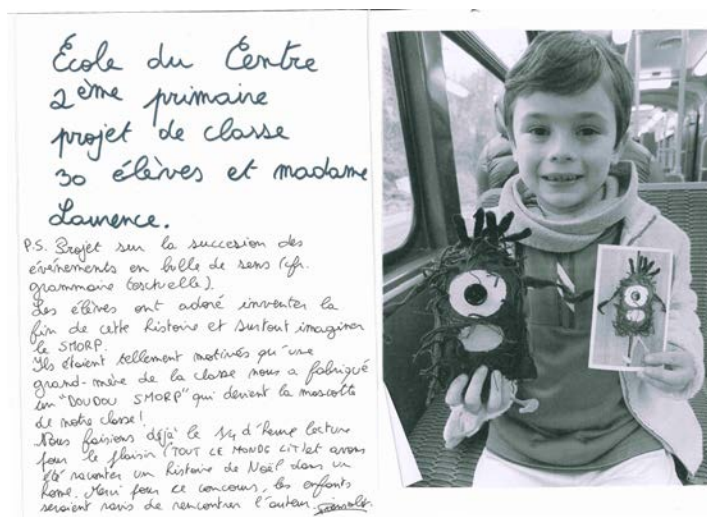 École du Centre
2ème primaire
projet de classe
30 élèves et madame
Laurence.
P.S. Projet sur la succession des
événements en bulle de sens (cfr.
grammaire textuelle).
Les élèves ont adoré inventer la
fin de cette histoire et surtout imaginer
le SMORP.
Ils étaient tellement motivés qu'une
grand-mère de la classe nous a fabriqué
un "DOUDOU SMORP" qui devient la mascotte
de notre classe!
Nous faisions déjà le 1/4 d'heure lecture
pour le plaisir (TOUT CE MONDE LIT) et avons
été raconter un histoire de Noël dans un
home. Merci pour ce concours, les enfants
seraient ravis de rencontrer l'auteur.